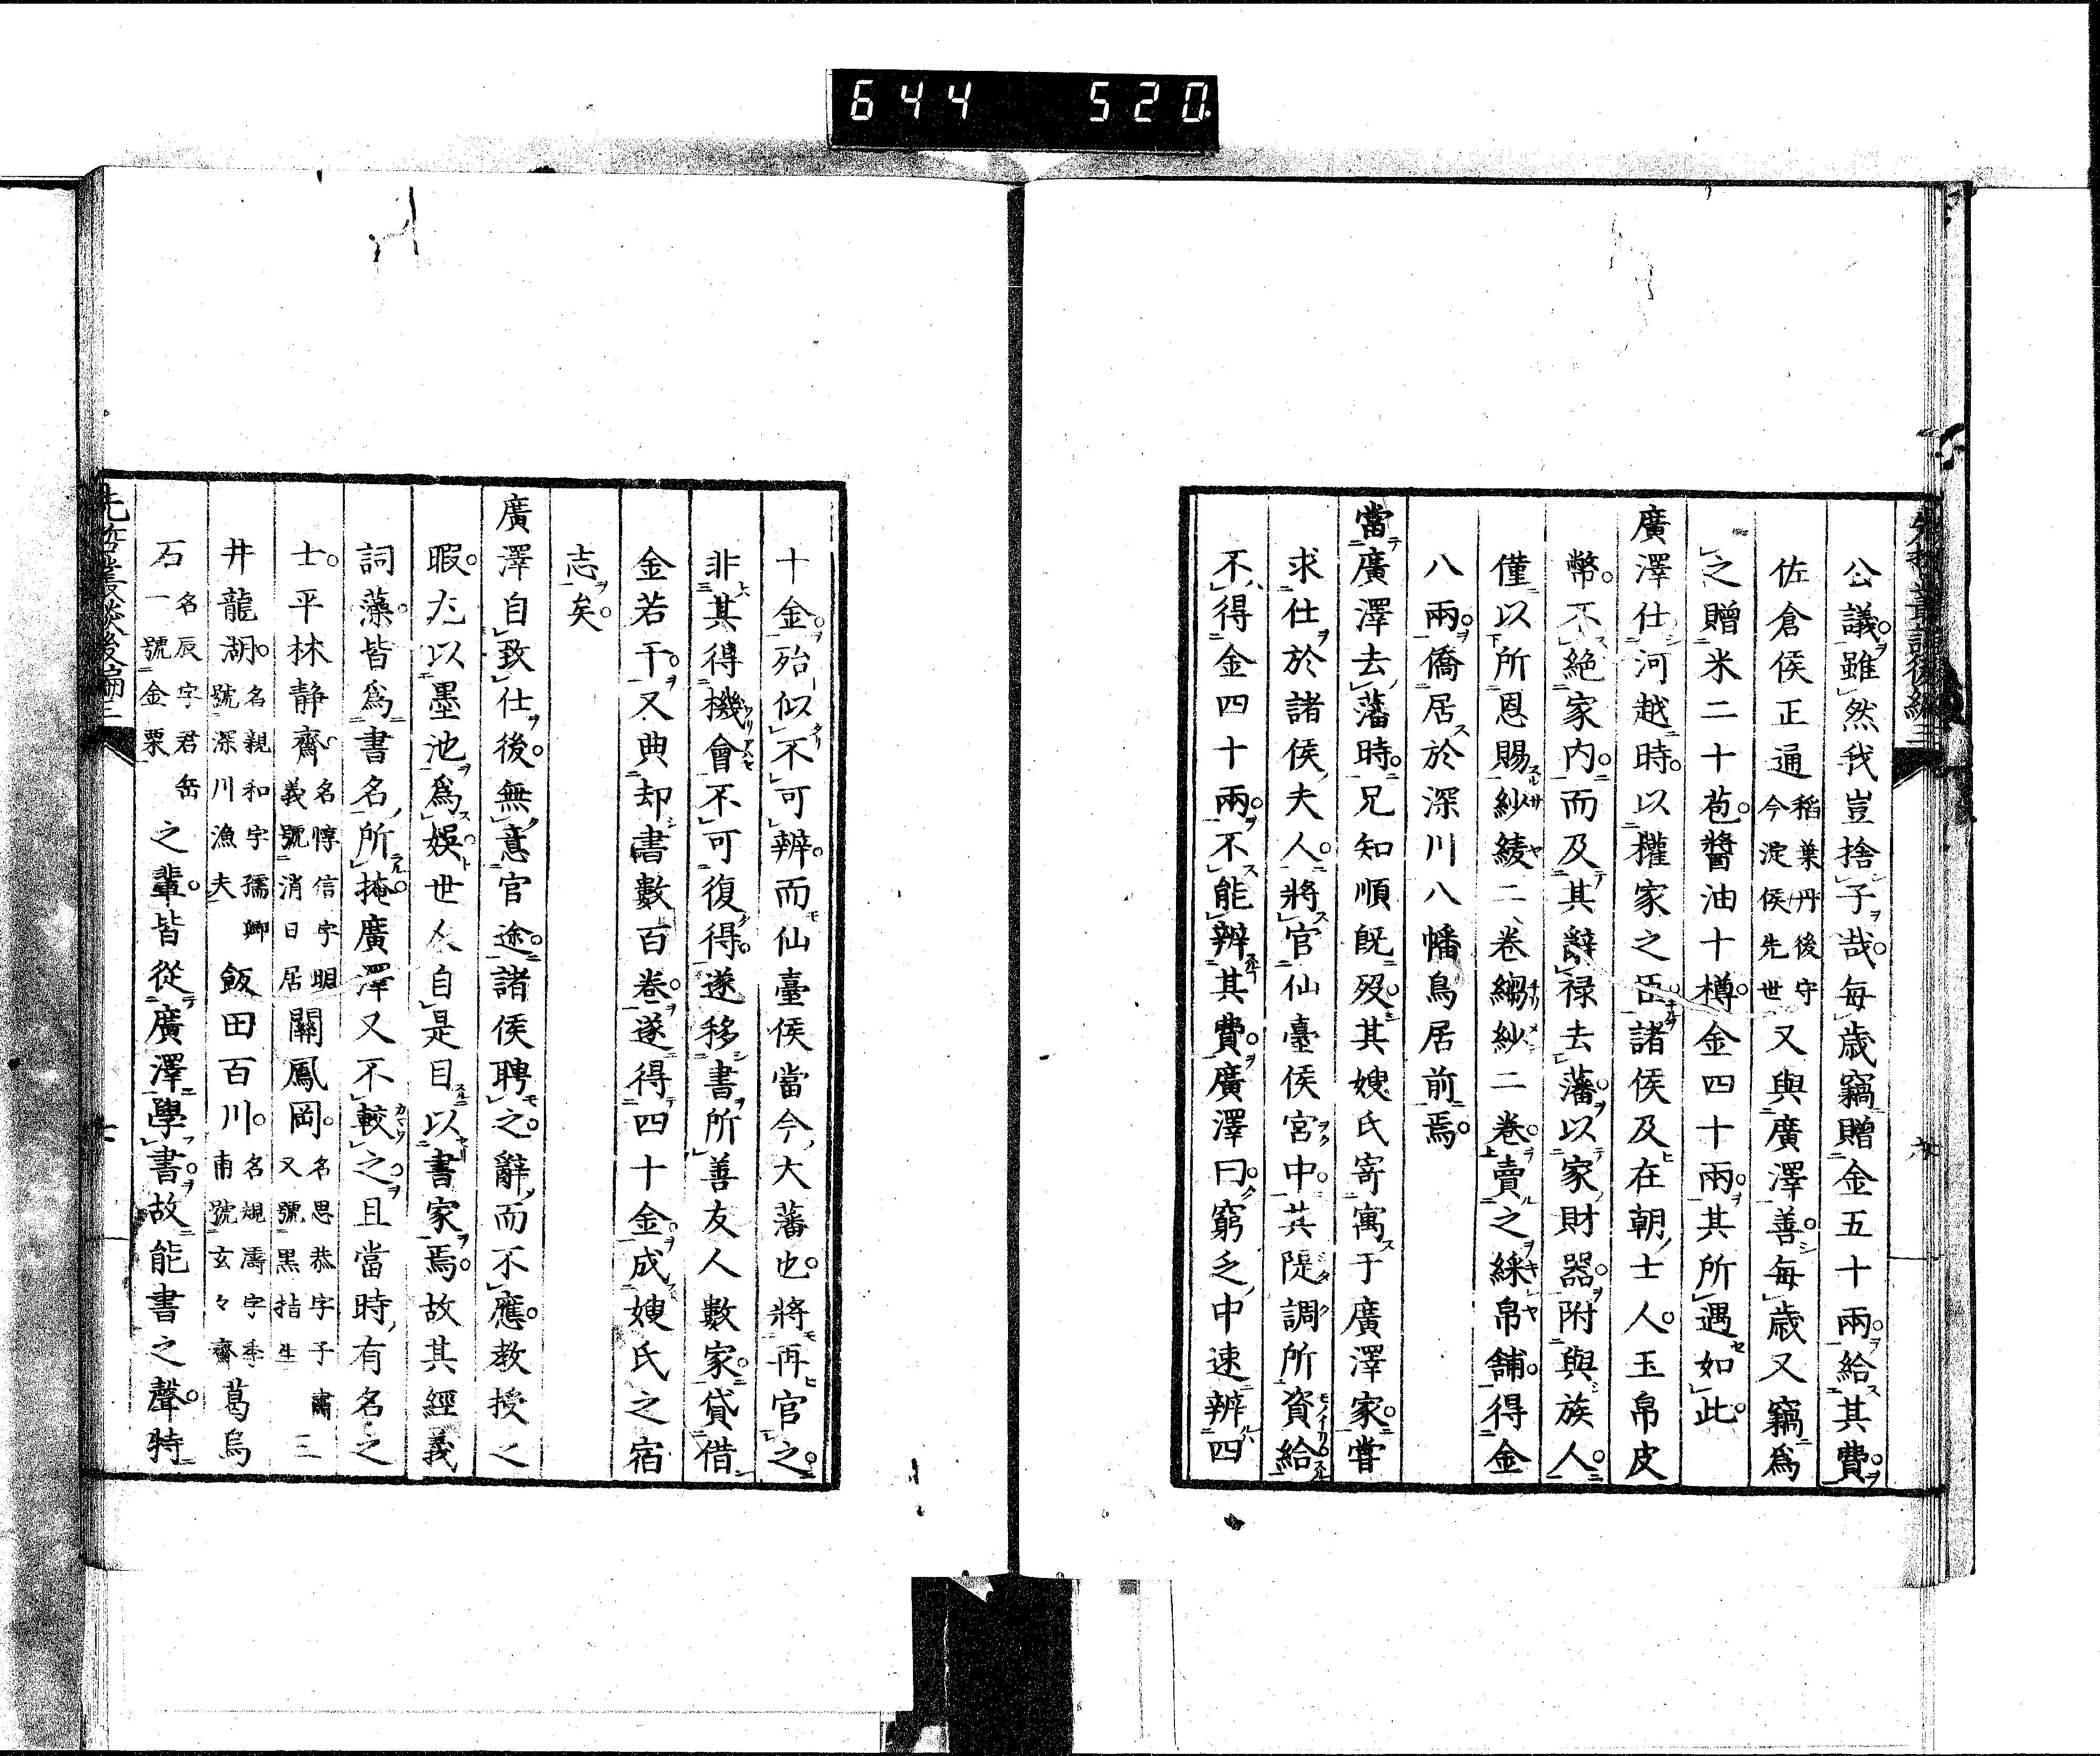 644 520
先哲叢談後編三
公議雖然我豈捨子哉每歳竊贈金五十兩給其費
佐倉侯正通稻葉丹後守今淀侯先世又與廣澤善每歳又竊爲
之贈米二十苞醬油十樽金四十兩其所遇如此
廣澤仕河越時以權家之臣諸侯及在朝士人玉帛皮
幣不絶家内而及其辭禄去藩以家財器附與族人
僅以所恩賜紗綾二卷縐紗二卷賣之綵帛舖得金
八兩僑居於深川八幡鳥居前焉
當廣澤去藩時兄知順既歿其嫂氏寄寓于廣澤家嘗
求仕於諸侯夫人將官仙臺侯宮中其隄調所資給
不得金四十兩不能辨其費廣澤曰窮乏中速辨四
十金殆似不可辨而仙臺侯當今大藩也將再官之
非其得機會不可復得遂移書所善友人數家貸借
金若干又典却書數百卷遂得四十金成嫂氏之宿
志矣
廣澤自致仕後無意官途諸侯聘之辭而不應教授之
暇尤以墨池爲娯世人自是目以書家焉故其經義
詞藻皆爲書名所掩廣澤又不較之且當時有名之
士平林静齋名惇信字明義號消日居關鳳岡名思恭字子肅又號黒指生三
井龍湖名親和字孺卿號深川漁夫飯田百川名規濤字季甫號玄々齋葛烏
石名辰字君岳一號金栗之輩皆從廣澤學書故能書之聲特
先哲叢談後編三
七